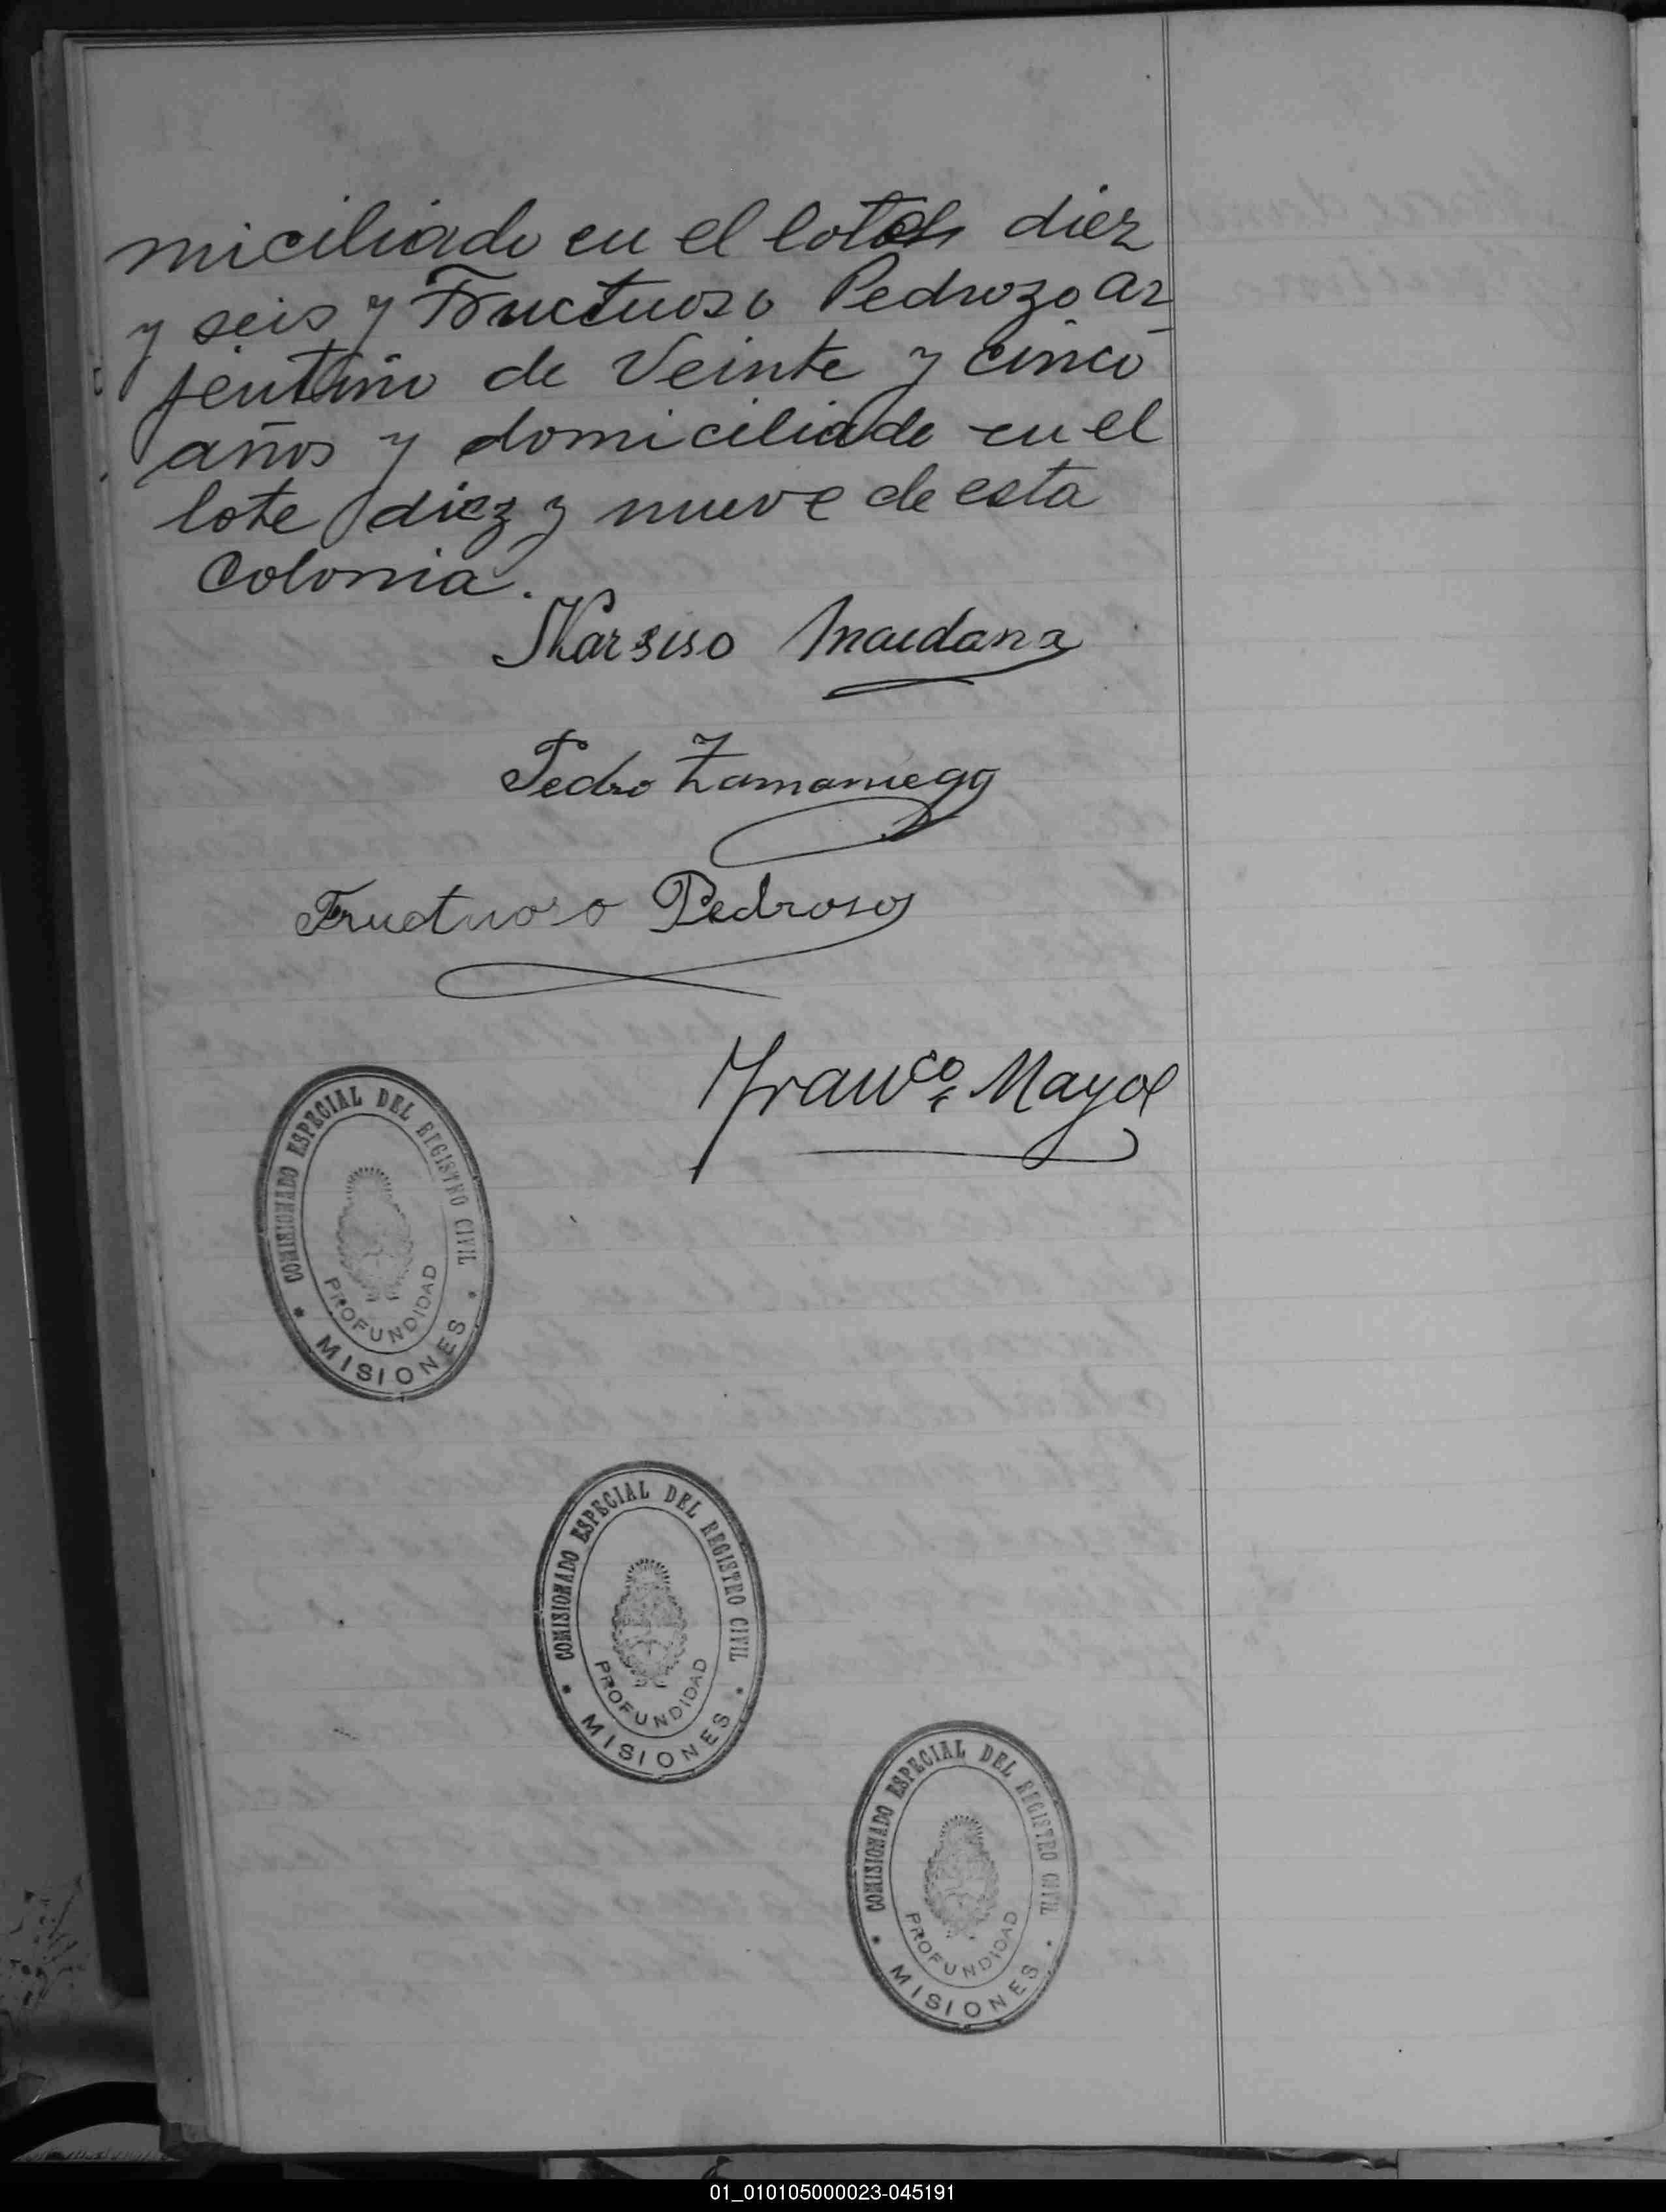 miciliado en el lote diez
y seis y Fructuoso Pedrozo ar
jentino de Veinte y cinco
años y domiciliado en el
lote diez y nueve de esta
Colonia.
Narsiso Maidana
Pedro Zamaniego
Fructuoso Pedroso
Franco Mayol
COMISIONADO ESPECIAL DEL REGISTRO CIVIL
PROFUNDIDAD
* MISIONES *
COMISIONADO ESPECIAL DEL REGISTRO CIVIL
PROFUNDIDAD
* MISIONES *
COMISIONADO ESPECIAL DEL REGISTRO CIVIL
PROFUNDIDAD
* MISIONES *
01_010105000023-045191